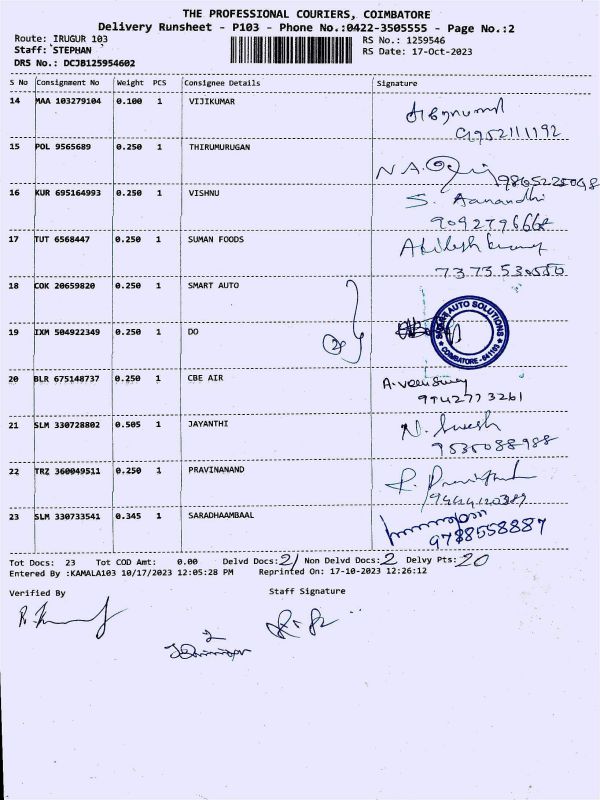 THE PROFESSIONAL COURIERS, COIMBATORE
Delivery Runsheet - P103 - Phone No.:0422-3505555 - Page No.:2
Route: IRUGUR 103 RS No.: 1259546
Staff: STEPHAN RS Date: 17-Oct-2023
DRS No.: DCJB125954602
S No Consignment No Weight PCS Consignee Details Signature
14 MAA 103279104 0.100 1 VIJIKUMAR
9952111192
15 POL 9565689 0.250 1 THIRUMURUGAN
N.A.
16 KUR 695164993 0.250 1 VISHNU S. Aanandhi
9092796668
17 TUT 6568447 0.250 1 SUMAN FOODS
7373530550
18 COK 20659820 0.250 1 SMART AUTO
AUTO SOLUTIONS
COIMBATORE - 641103
19 IXM 504922349 0.250 1 DO
2
20 BLR 675148737 0.250 1 CBE AIR
9942773261
21 SLM 330728802 0.505 1 JAYANTHI N. Suresh
9535088988
22 TRZ 360049511 0.250 1 PRAVINANAND
23 SLM 330733541 0.345 1 SARADHAAMBAAL
9788558887
Tot Docs: 23 Tot COD Amt: 0.00 Delvd Docs: 21 Non Delvd Docs: 2 Delvy Pts: 20
Entered By :KAMALA103 10/17/2023 12:05:28 PM Reprinted On: 17-10-2023 12:26:12
Verified By Staff Signature